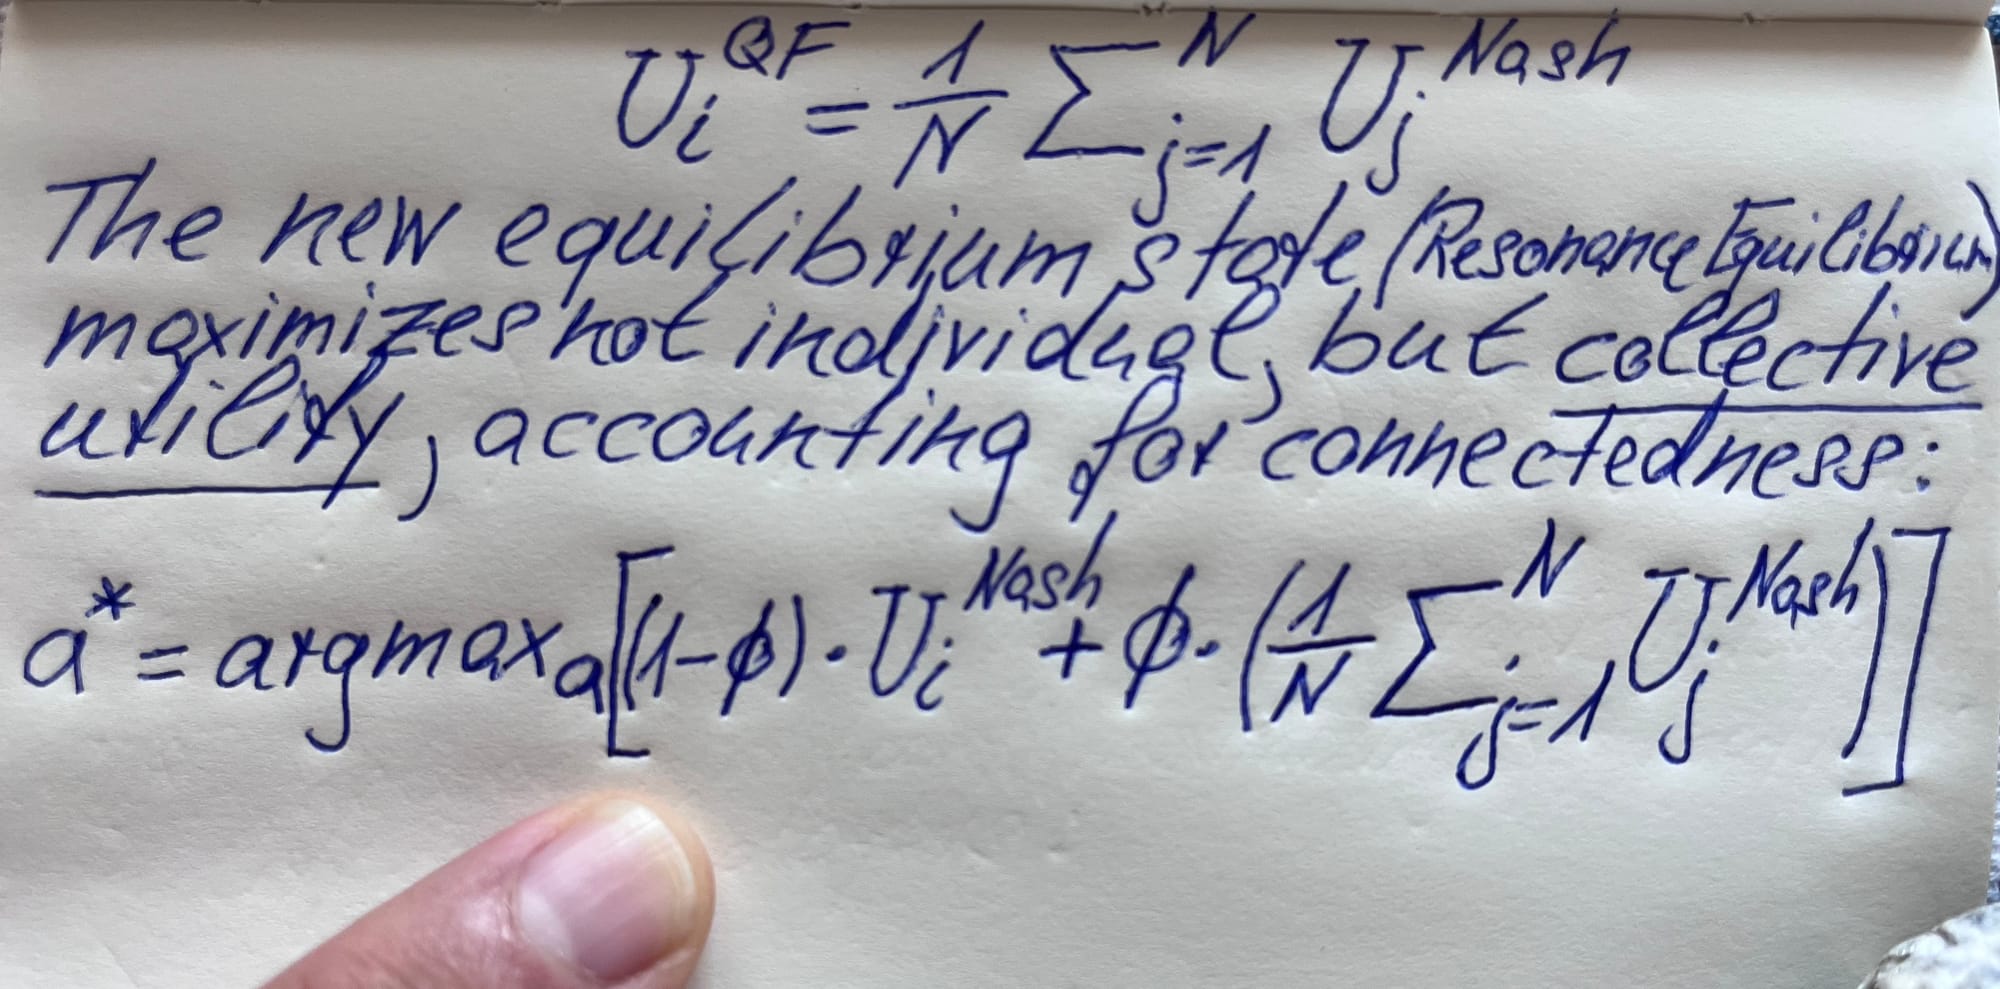 U_i^QF = 1/N ∑_{j=1}^N U_j^Nash
The new equilibrium state (Resonance Equilibrium)
maximizes not individual, but collective
utility, accounting for connectedness:
a* = argmax_a [(1-ϕ) · U_i^Nash + ϕ · (1/N ∑_{j=1}^N U_j^Nash)]